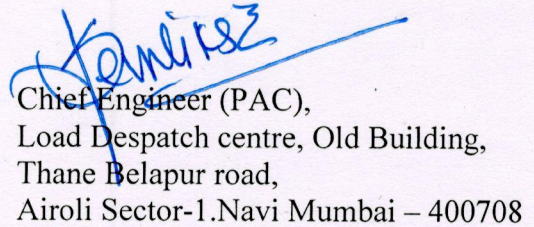 Chief Engineer (PAC),
Load Despatch centre, Old Building,
Thane Belapur road,
Airoli Sector-1.Navi Mumbai – 400708